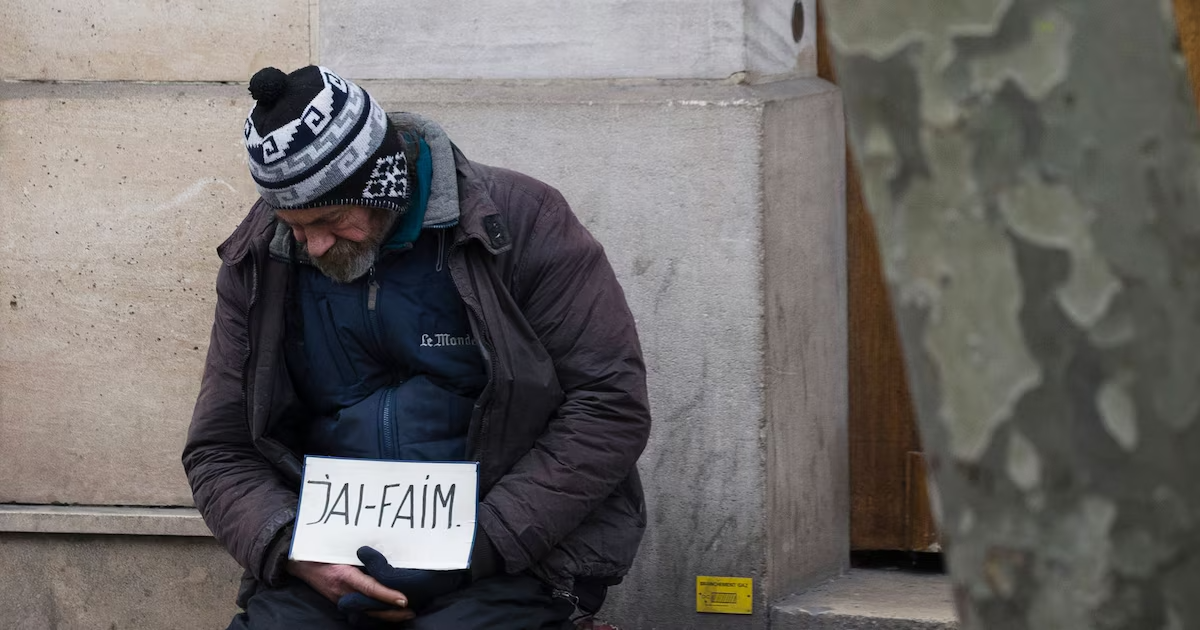 Le Monde
J'AI-FAIM.
BRANCHEMENT GAZ